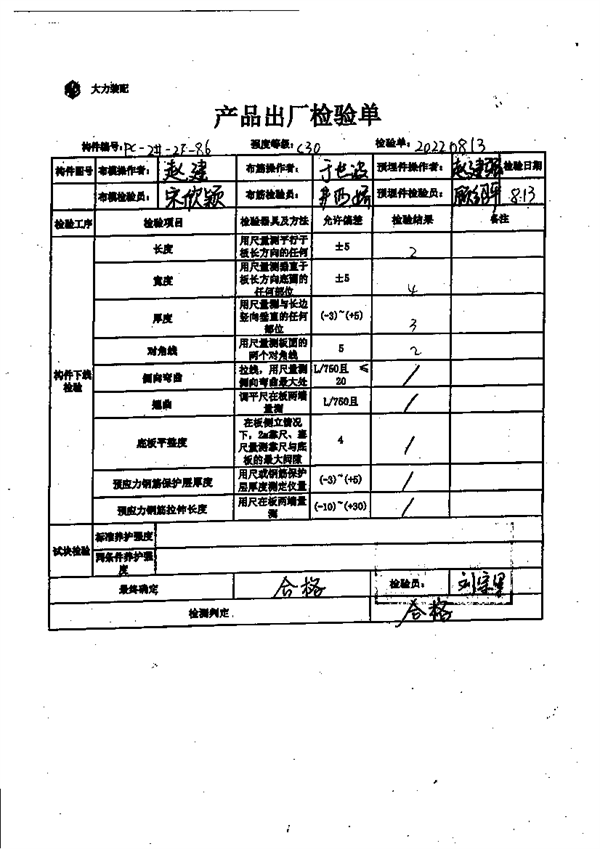 大力装配
产品出厂检验单
构件编号:PC-2#-2F-86 强度等级:C30 检验单:20220813
构件图号 布模操作者: 赵建 布筋操作者: 于世波 预埋件操作者: 检验日期
布模检验员: 宋欣颖 布筋检验员: 预埋件检验员: 8.13
检验工序 检验项目 检验器具及方法 允许偏差 检验结果 备注
构件下线检验
长度 用尺量测平行于板长方向的任何 ±5 2
宽度 用尺量测垂直于板长方向底面的任何部位 ±5 4
厚度 用尺量测与长边竖向垂直的任何部位 (-3)~(+5) 3
对角线 用尺量测板面的两个对角线 5 2
侧向弯曲 拉线,用尺量测侧向弯曲最大处 L/750且 ≤20 /
翘曲 调平尺在板两端量测 L/750且 /
底板平整度 在板侧立情况下,2m靠尺、塞尺量测靠尺与底板的最大间隙 4 /
预应力钢筋保护层厚度 用尺或钢筋保护层厚度测定仪量 (-3)~(+5) /
预应力钢筋拉伸长度 用尺在板两端量测 (-10)~(+30) /
试块检验 标准养护强度
同条件养护强度
最终确定 合格 检验员:
检测判定 合格